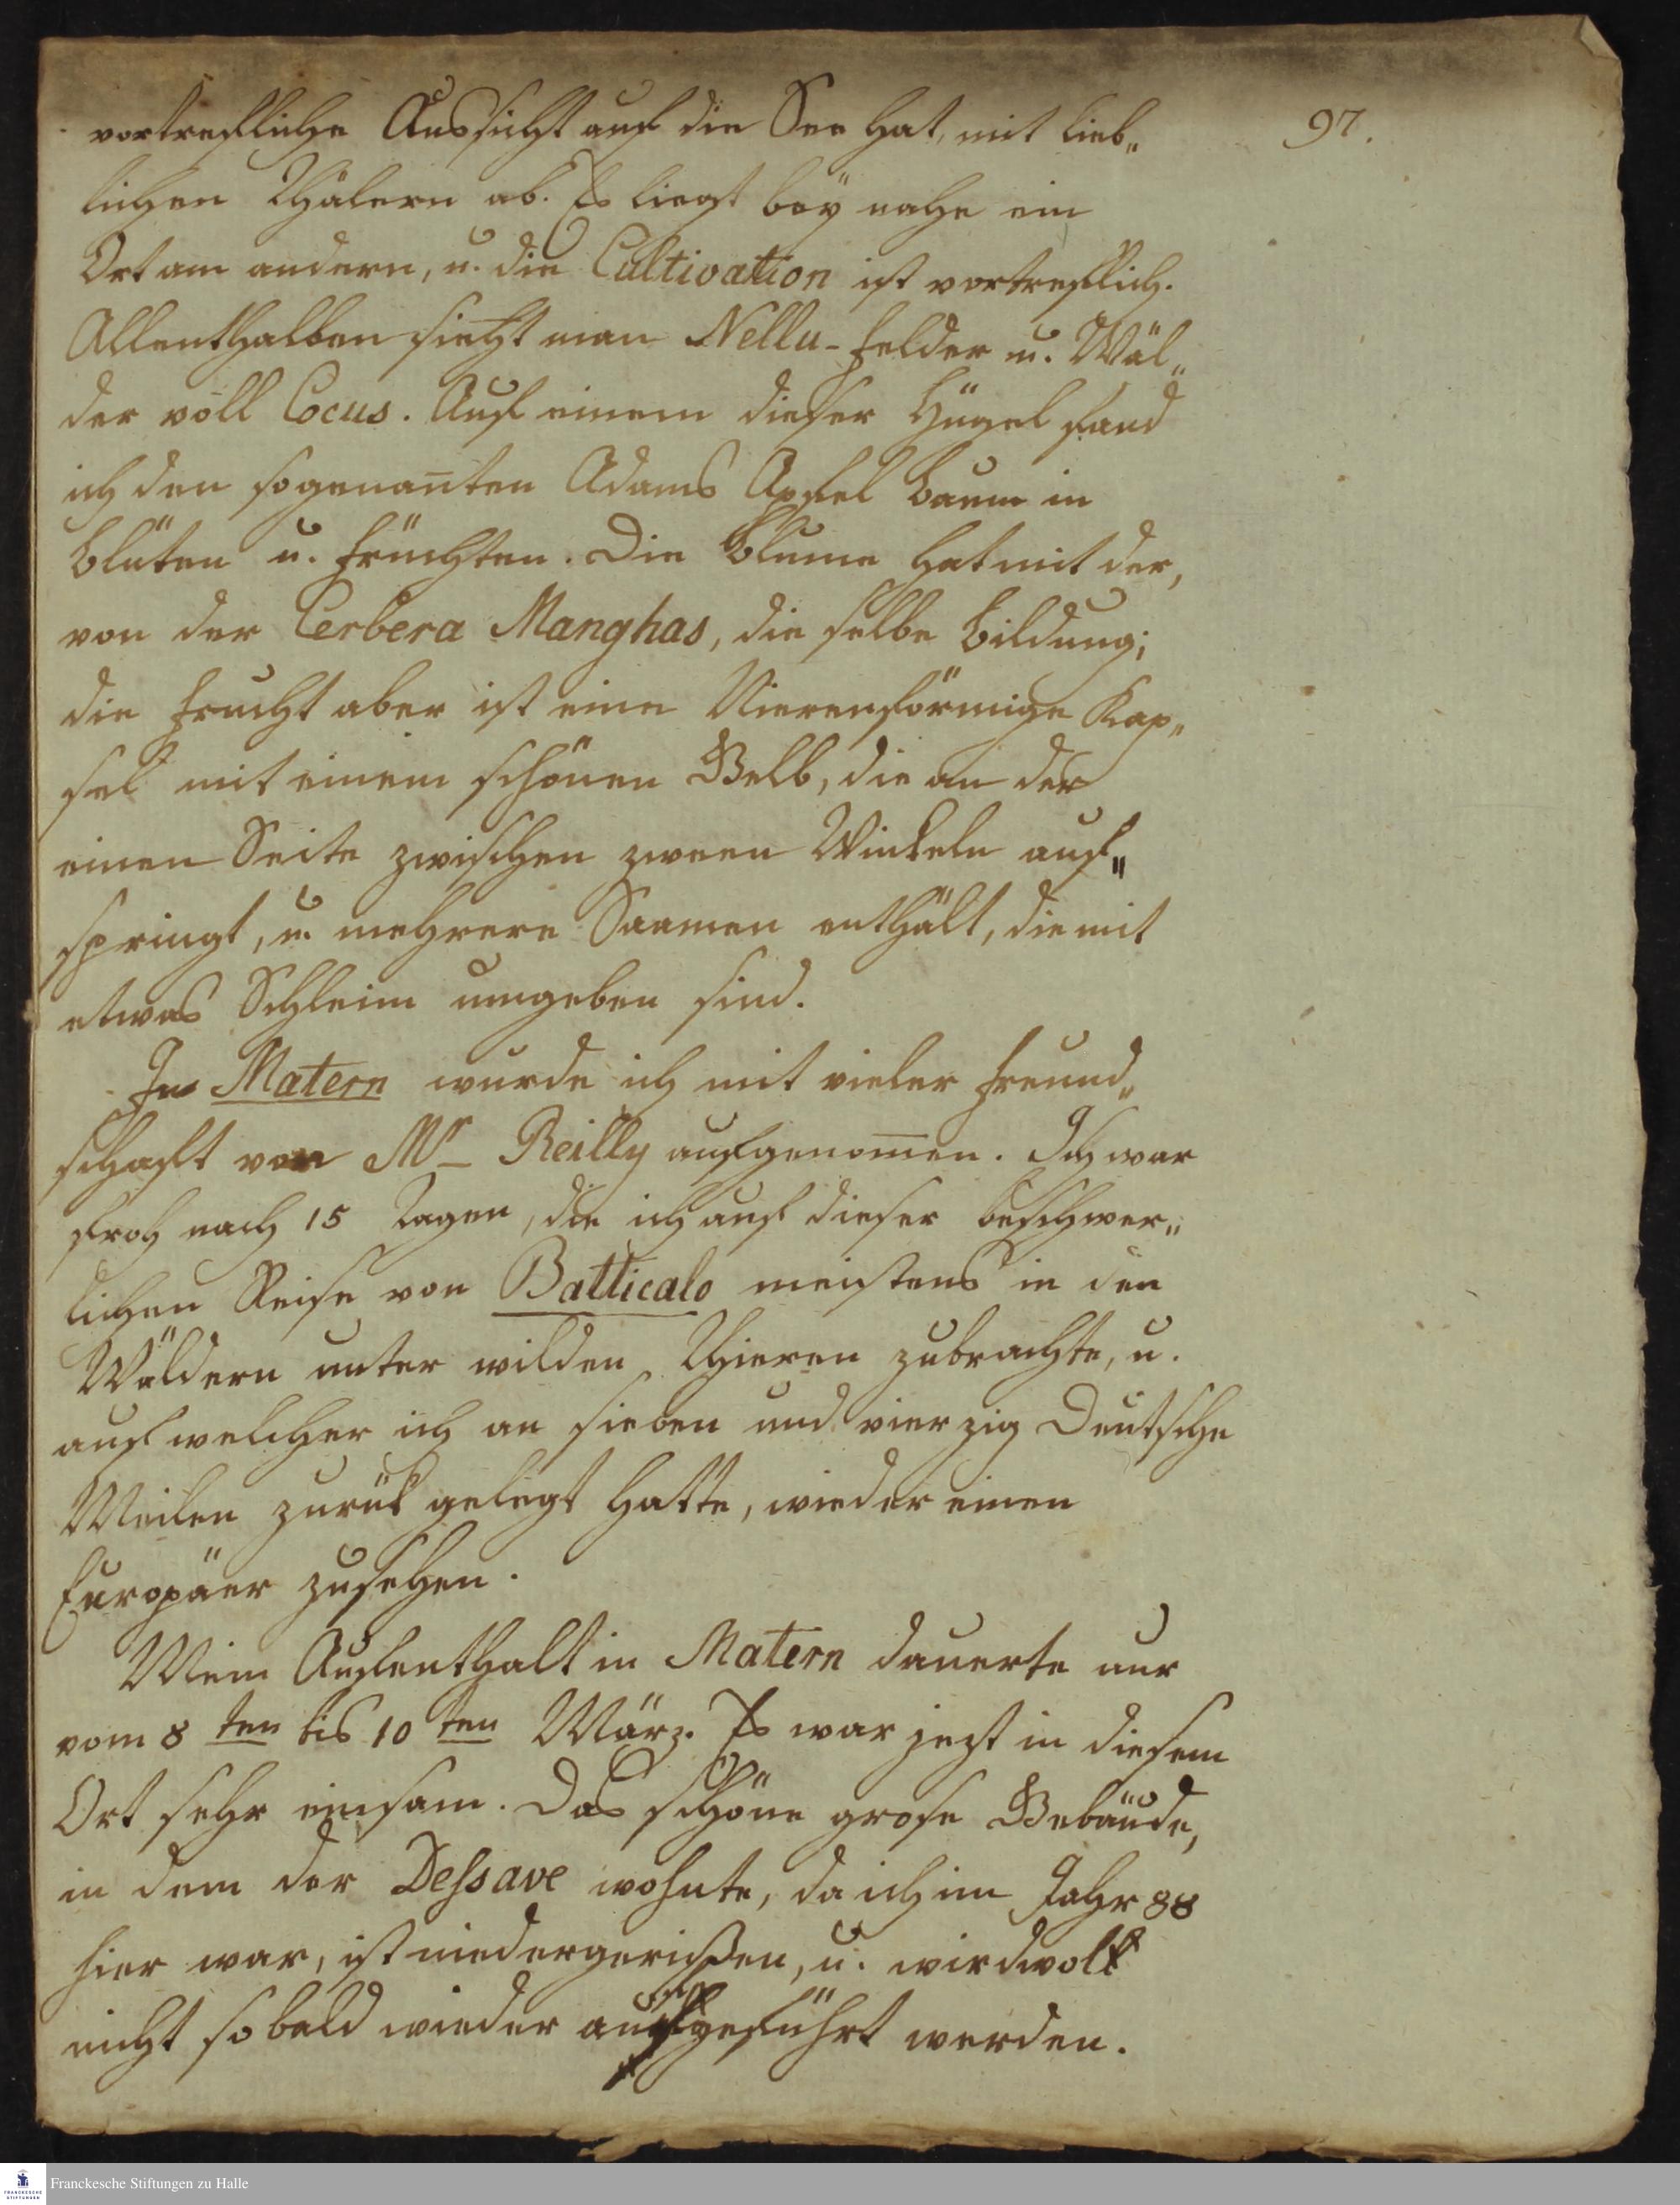 97.
vortrefliche Aussicht auf die See hat, mit lieb„
lichen Thälern ab. Es liegt bey nahe ein
Ort am andern, u. die Cultivation ist vortreflich.
Allenthalben sieht man Nellu-felder u. Wäl„
der voll Cocus. Auf einem dieser Hügel fand
ich den sogenan̅ten Adams Apfel baum in
blüten u. früchten. Die Blume hat mit der,
von der Cerbera Manghas, die selbe bildung;
die frucht aber ist eine Nierenförmige Kap„
sel mit einem schönen Gelb, die an der
einen Seite zwischen zween Winkeln auf„
springt, u. mehrere Saamen enthält, die mit
etwas Schleim umgeben sind.
In Matern wurde ich mit vieler freund„
schaft von Mr Reilly aufgenom̅en. Ich war
froh nach 15 Tagen, die ich auf dieser beschwer„
lichen Reise von Batticalo meistens in den
Wäldern unter wilden Thieren zubrachte, u.
auf welcher ich an sieben und vierzig Deutsche
Meilen zurük gelegt hatte, wieder einen
Europäer zusehen.
Mein Aufenthalt in Matern dauerte nur
vom 8 ten bis 10 ten März. Es war jezt in diesem
Ort sehr einsam. Das schöne grose Gebäude,
in dem der Dessave wohnte, da ich im Jahr 88
hier war, ist niedergerißen, u. wird wol
nicht so bald wieder aufgeführt werden.
Franckesche Stiftungen zu Halle
FRANCKESCHE
STIFTUNGEN